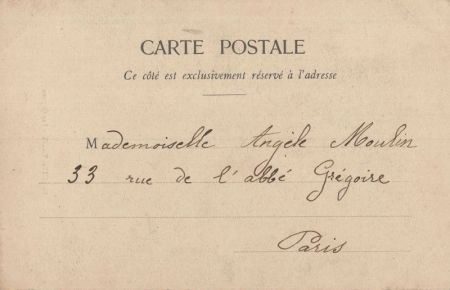 CARTE POSTALE
Ce côté est exclusivement réservé à l'adresse
Mademoiselle Angèle Moulin
33 rue de l'abbé Grégoire
Paris